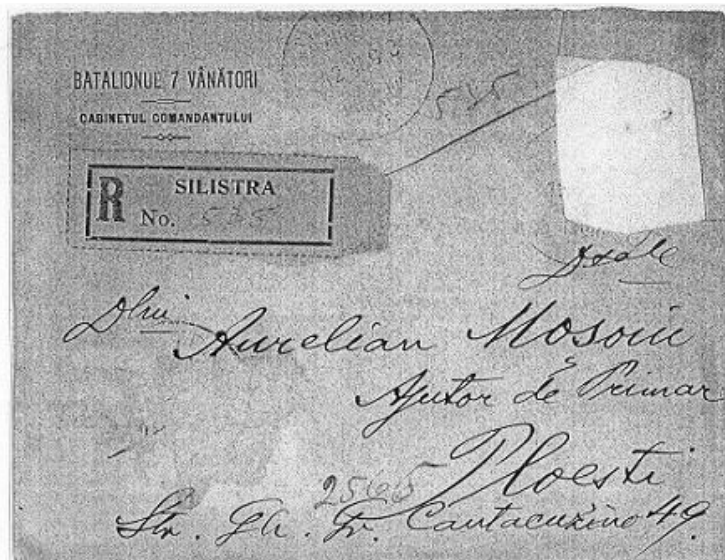 BATALIONUL 7 VÂNĂTORI
CABINETUL COMANDANTULUI
545
R SILISTRA
No. 535
Dsale
Dlui Aurelian Mosoiu
Ajutor de Primar
Ploesti
2565
Str. Gh. Gr. Cantacuzino 49.